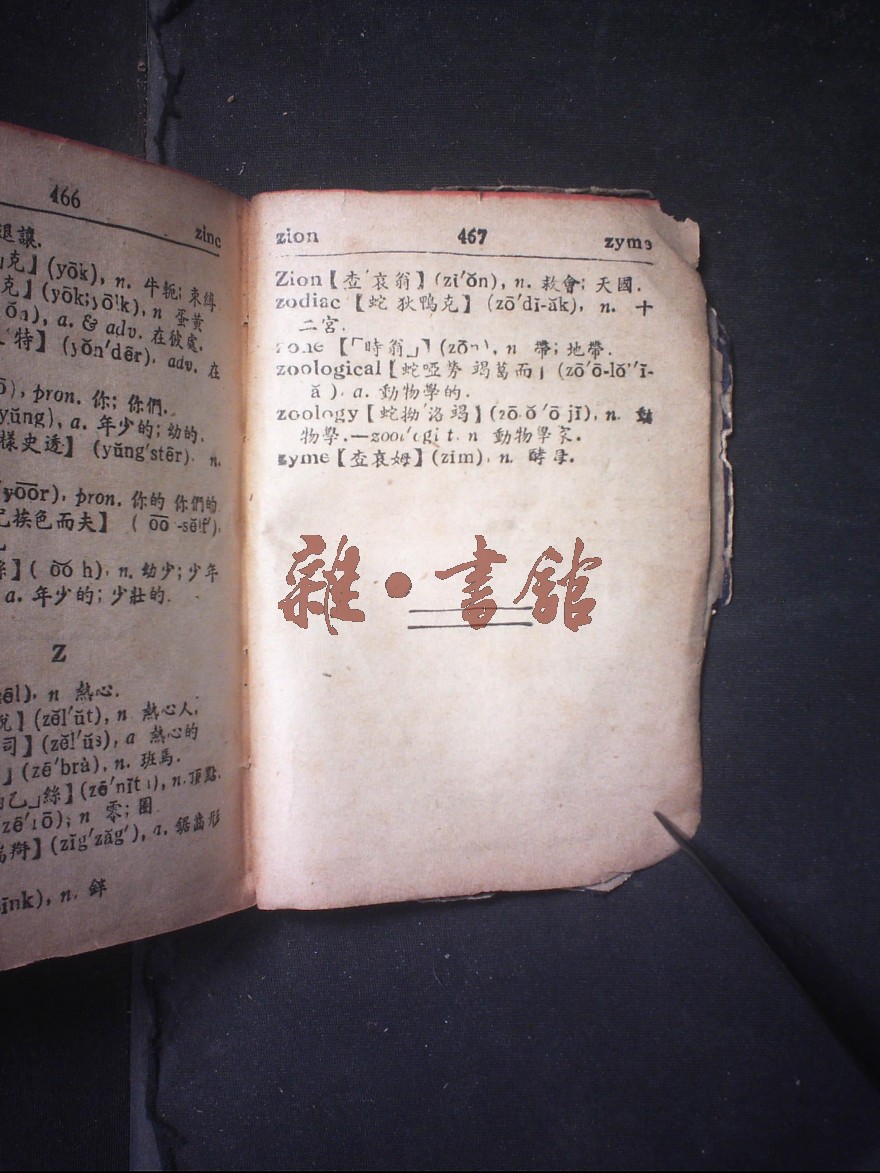 466
zinc
退讓.
克】(yōk), n. 牛軛; 束縛
克】(yōk; yōlk), n 蛋黃
a. & adv. 在彼處.
特】(yŏn'dẽr). adv. 在
pron. 你; 你們.
(yŭng), a. 年少的; 幼的.
樣史透】(yŭng'stẽr). n.
yo͞or), pron. 你的 你們的
挨色而夫】( o͞o -sĕlf'),
n. 幼少; 少年
a. 年少的; 少壯的.
Z
n 熱心.
(zĕl'ŭt), n 熱心人.
司】(zĕl'ŭs), a 熱心的
(zē'brȧ), n. 班馬.
乙」絲】(zē'nĭt ), n. 頂點.
n 零; 圈
(zĭg'zăg'), a. 鋸齒形
ĭnk), n. 鋅
zion 467 zyme
Zion【查′哀翁】(zī'ŏn), n. 教會; 天國.
zodiac【蛇 狄鴨克】(zō'dĭ-ăk), n. 十
二宮.
zone【「時翁」】(zōn), n 帶; 地帶.
zoological【蛇啞勞 竭葛而」(zō'ō-lŏ''ĭ-
ă ). a. 動物學的.
zoology【蛇拗′洛竭】(zō ŏ'ō jĭ), n. 動
物學.—zool'ogi t. n 動物學家.
zyme【查哀姆】(zīm), n. 酵母.
雜·書館